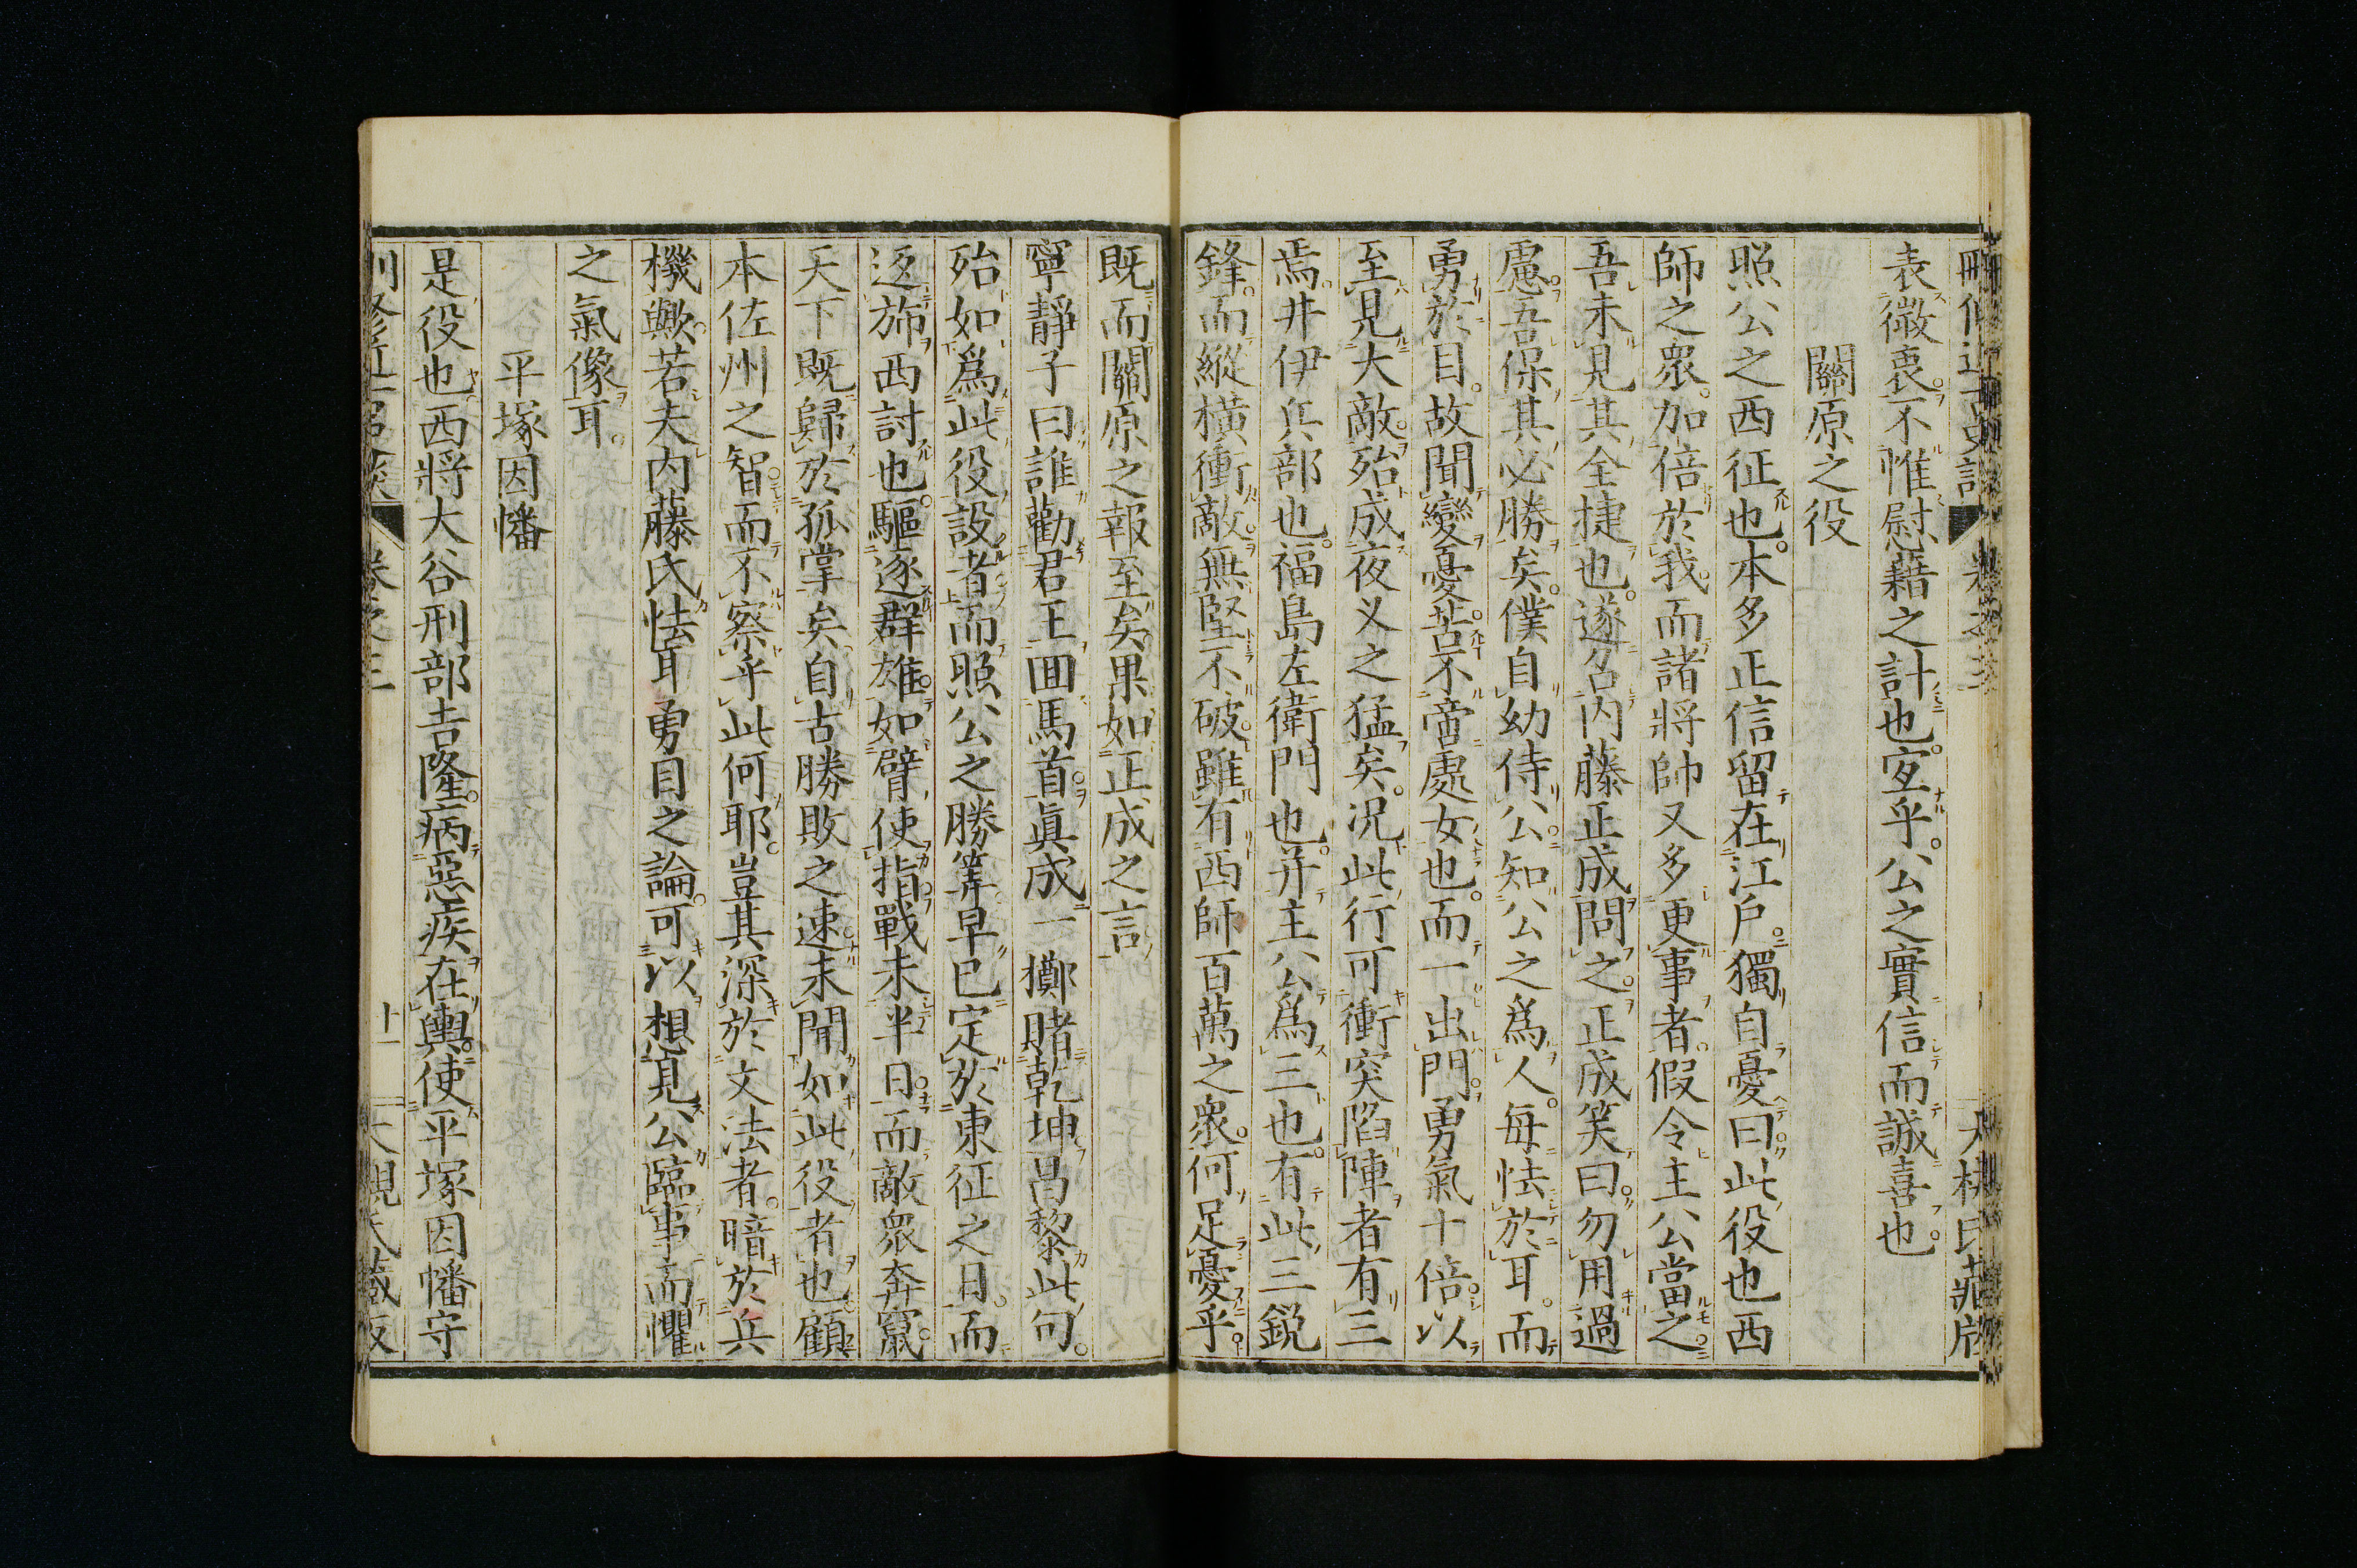 表微衷不惟慰藉之計也宐乎公之實信而誠喜也
關原之役
照公之西征也本多正信留在江戶獨自憂曰此役也西
師之衆加倍於我而諸將帥又多更事者假令主公當之
吾未見其全捷也遂召內藤正成問之正成笑曰勿用過
慮吾保其必勝矣僕自幼侍公知公之爲人每怯於耳而
勇於目故聞變憂苦不啻處女也而一出門勇氣十倍以
至見大敵殆成夜叉之猛矣況此行可衝突陷陣者有三
焉井伊兵部也福島左衛門也并主公爲三也有此三銳
鋒而縱橫衝敵無堅不破雖有西師百萬之衆何足憂乎
既而關原之報至矣果如正成之言
寧靜子曰誰勸君王囬馬首眞成一擲賭乾坤昌黎此句
殆如爲此役設者而照公之勝筭早已定於東征之日而
返斾西討也驅逐群雄如臂使指戰未半日而敵衆奔竄
天下既歸於孤掌矣自古勝敗之速未聞如此役者也顧
本佐州之智而不察乎此何耶豈其深於文法者暗於兵
機歟若夫內藤氏怯耳勇目之論可以想見公臨事而懼
之氣像耳
平塚因幡
是役也西將大谷刑部吉隆病惡疾在輿使平塚因幡守